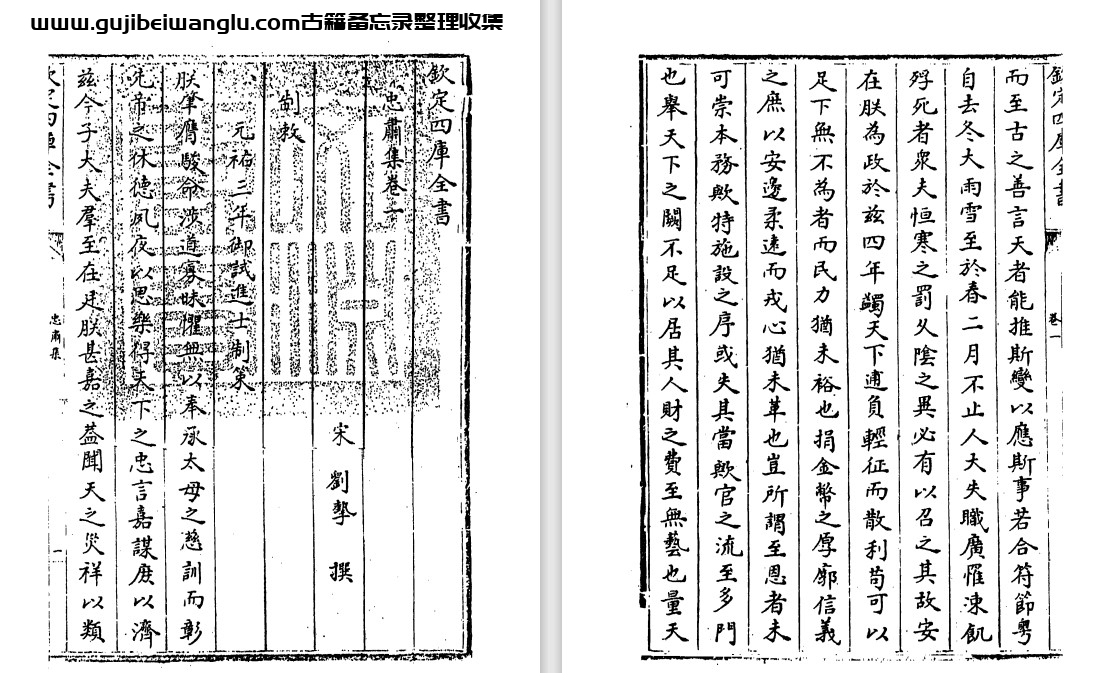 www.gujibeiwanglu.com古籍备忘录整理收集
欽定四庫全書
忠肅集卷一
宋 劉摯 撰
制敕
元祐三年御試進士制策
朕肇膺駿命涉道寡昧懼無以奉承太母之慈訓而彰
先帝之休德夙夜以思樂得天下之忠言嘉謀庶以濟
茲今子大夫羣至在廷朕甚嘉之葢聞天之災祥以類
欽定四庫全書 忠肅集 一
欽定四庫全書 卷一
而至古之善言天者能推斯變以應斯事若合符節粵
自去冬大雨雪至於春二月不止人大失職廣罹凍飢
殍死者衆夫恒寒之罰久陰之異必有以召之其故安
在朕為政於茲四年蠲天下逋負輕征而散利苟可以
足下無不為者而民力猶未裕也捐金幣之厚廓信義
之庶以安邊柔遠而戎心猶未革也豈所謂至恩者未
可崇本務歟特施設之序或失其當歟官之流至多門
也舉天下之闕不足以居其人財之費至無藝也量天